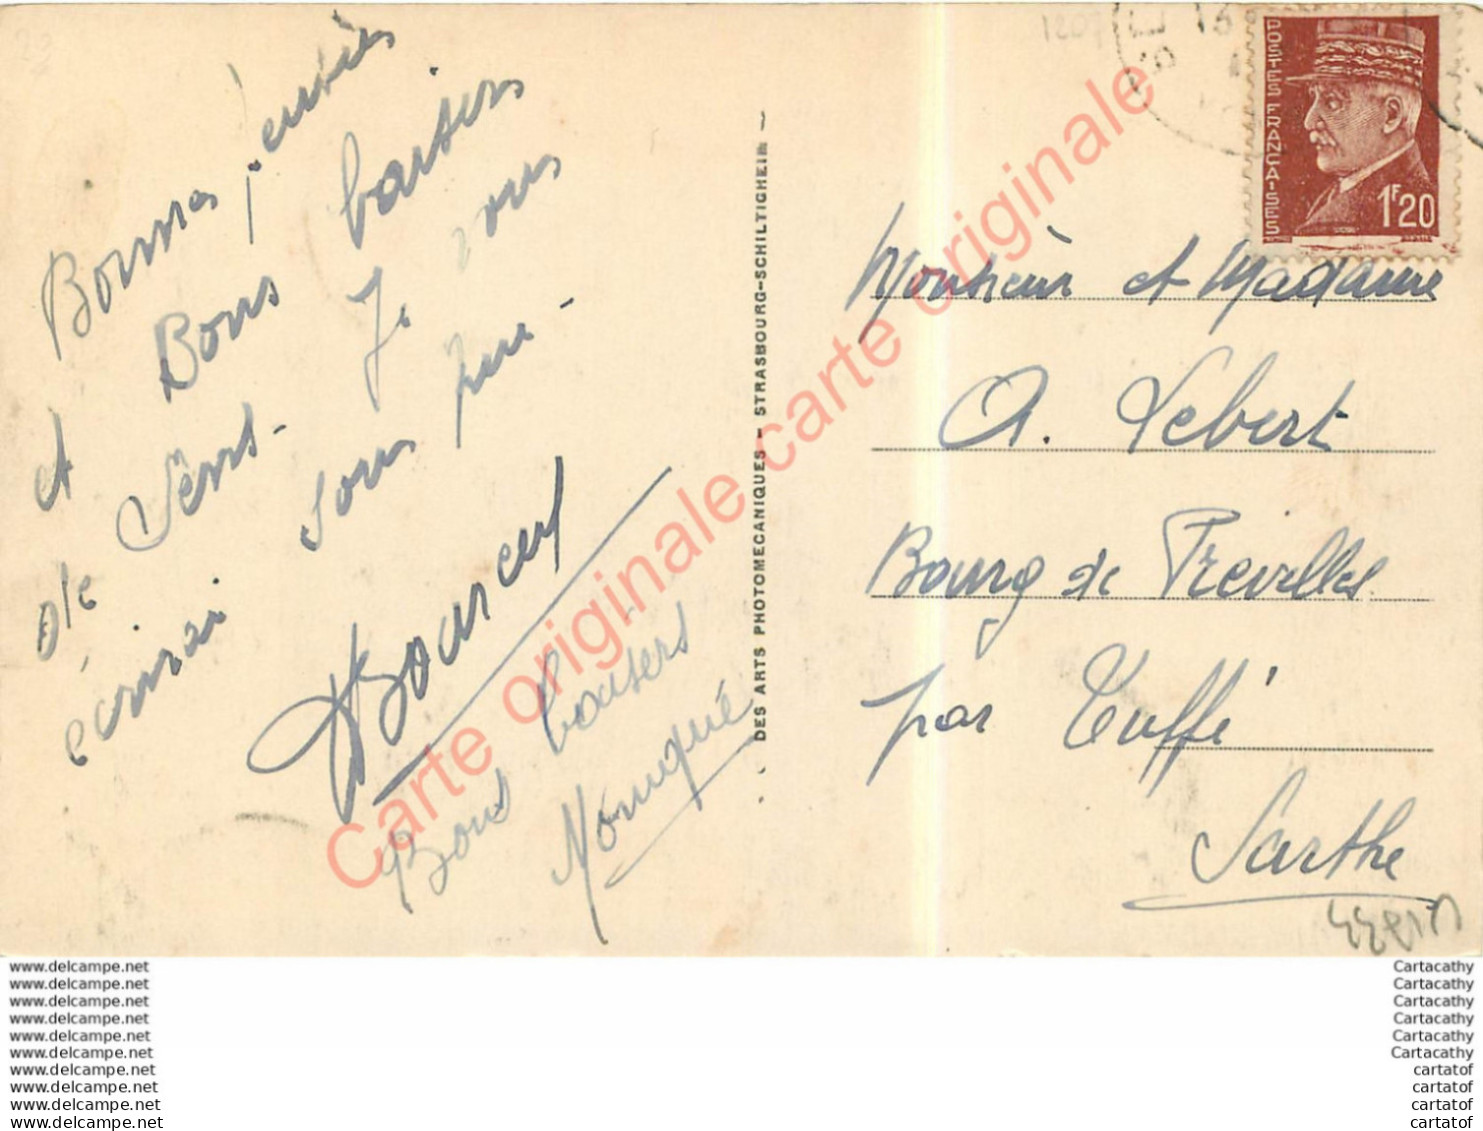 Bonnes pensées
et Bons baisers
de Sens. Je vous
écrirai sous peu.
Bons baisers
Monique
DES ARTS PHOTOMECANIQUES - STRASBOURG-SCHILTIGHEIM -
POSTES FRANÇAISES
1F20
Monsieur et Madame
A. Lebert
Bourg de Prevelles
par Tuffé
Sarthe
Carte originale carte originale carte originale
www.delcampe.net
www.delcampe.net
www.delcampe.net
www.delcampe.net
www.delcampe.net
www.delcampe.net
www.delcampe.net
www.delcampe.net
www.delcampe.net
www.delcampe.net
Cartacathy
Cartacathy
Cartacathy
Cartacathy
Cartacathy
Cartacathy
cartatof
cartatof
cartatof
cartatof